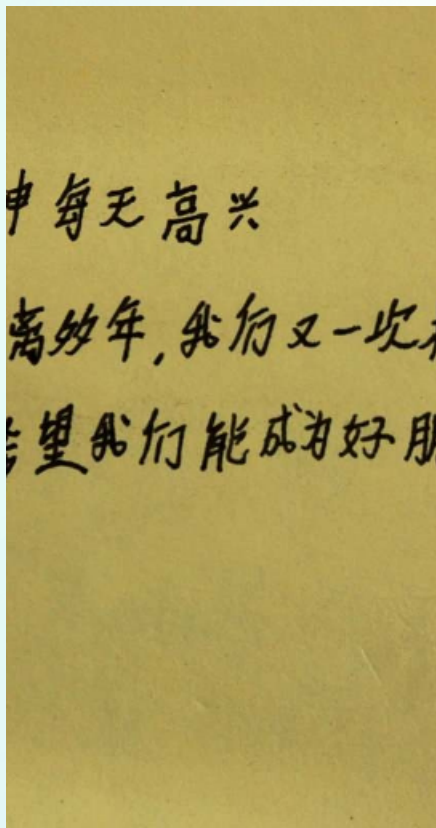 每天高兴
离多年,我们又一次
望我们能成为好